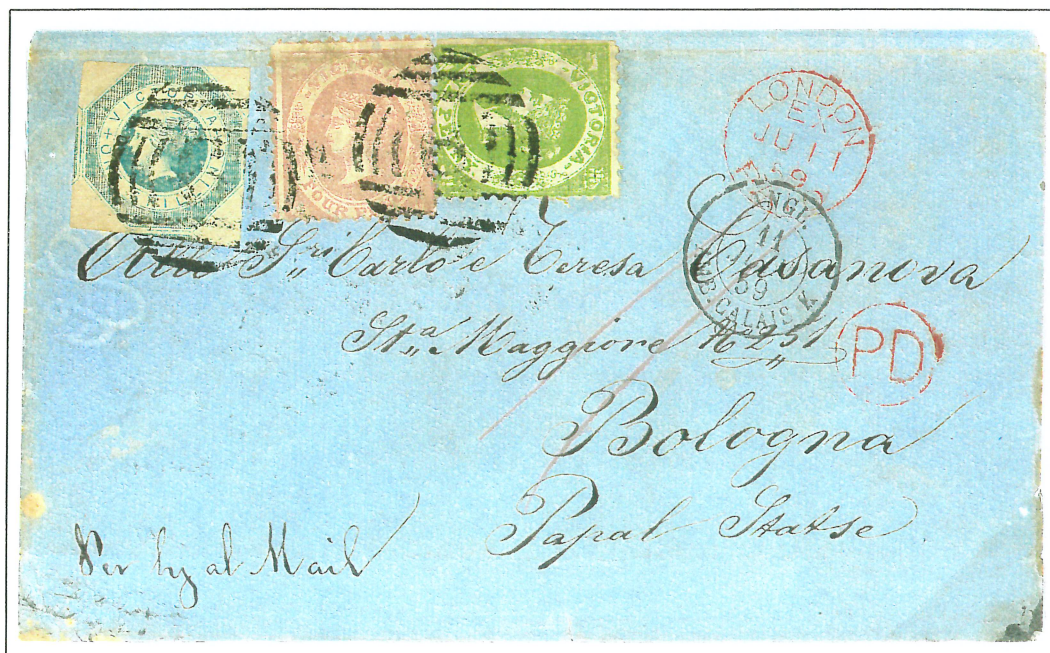 VICTORIA
VICTORIA
VICTORIA
FOUR
LONDON
EX
JU 11
59
ANGL.
11
59
AMB. CALAIS K
PD
Alli Sig.ri Carlo e Teresa Casanova
St.a Maggiore N° 251
Bologna
Papal Statse
Per by al Mail